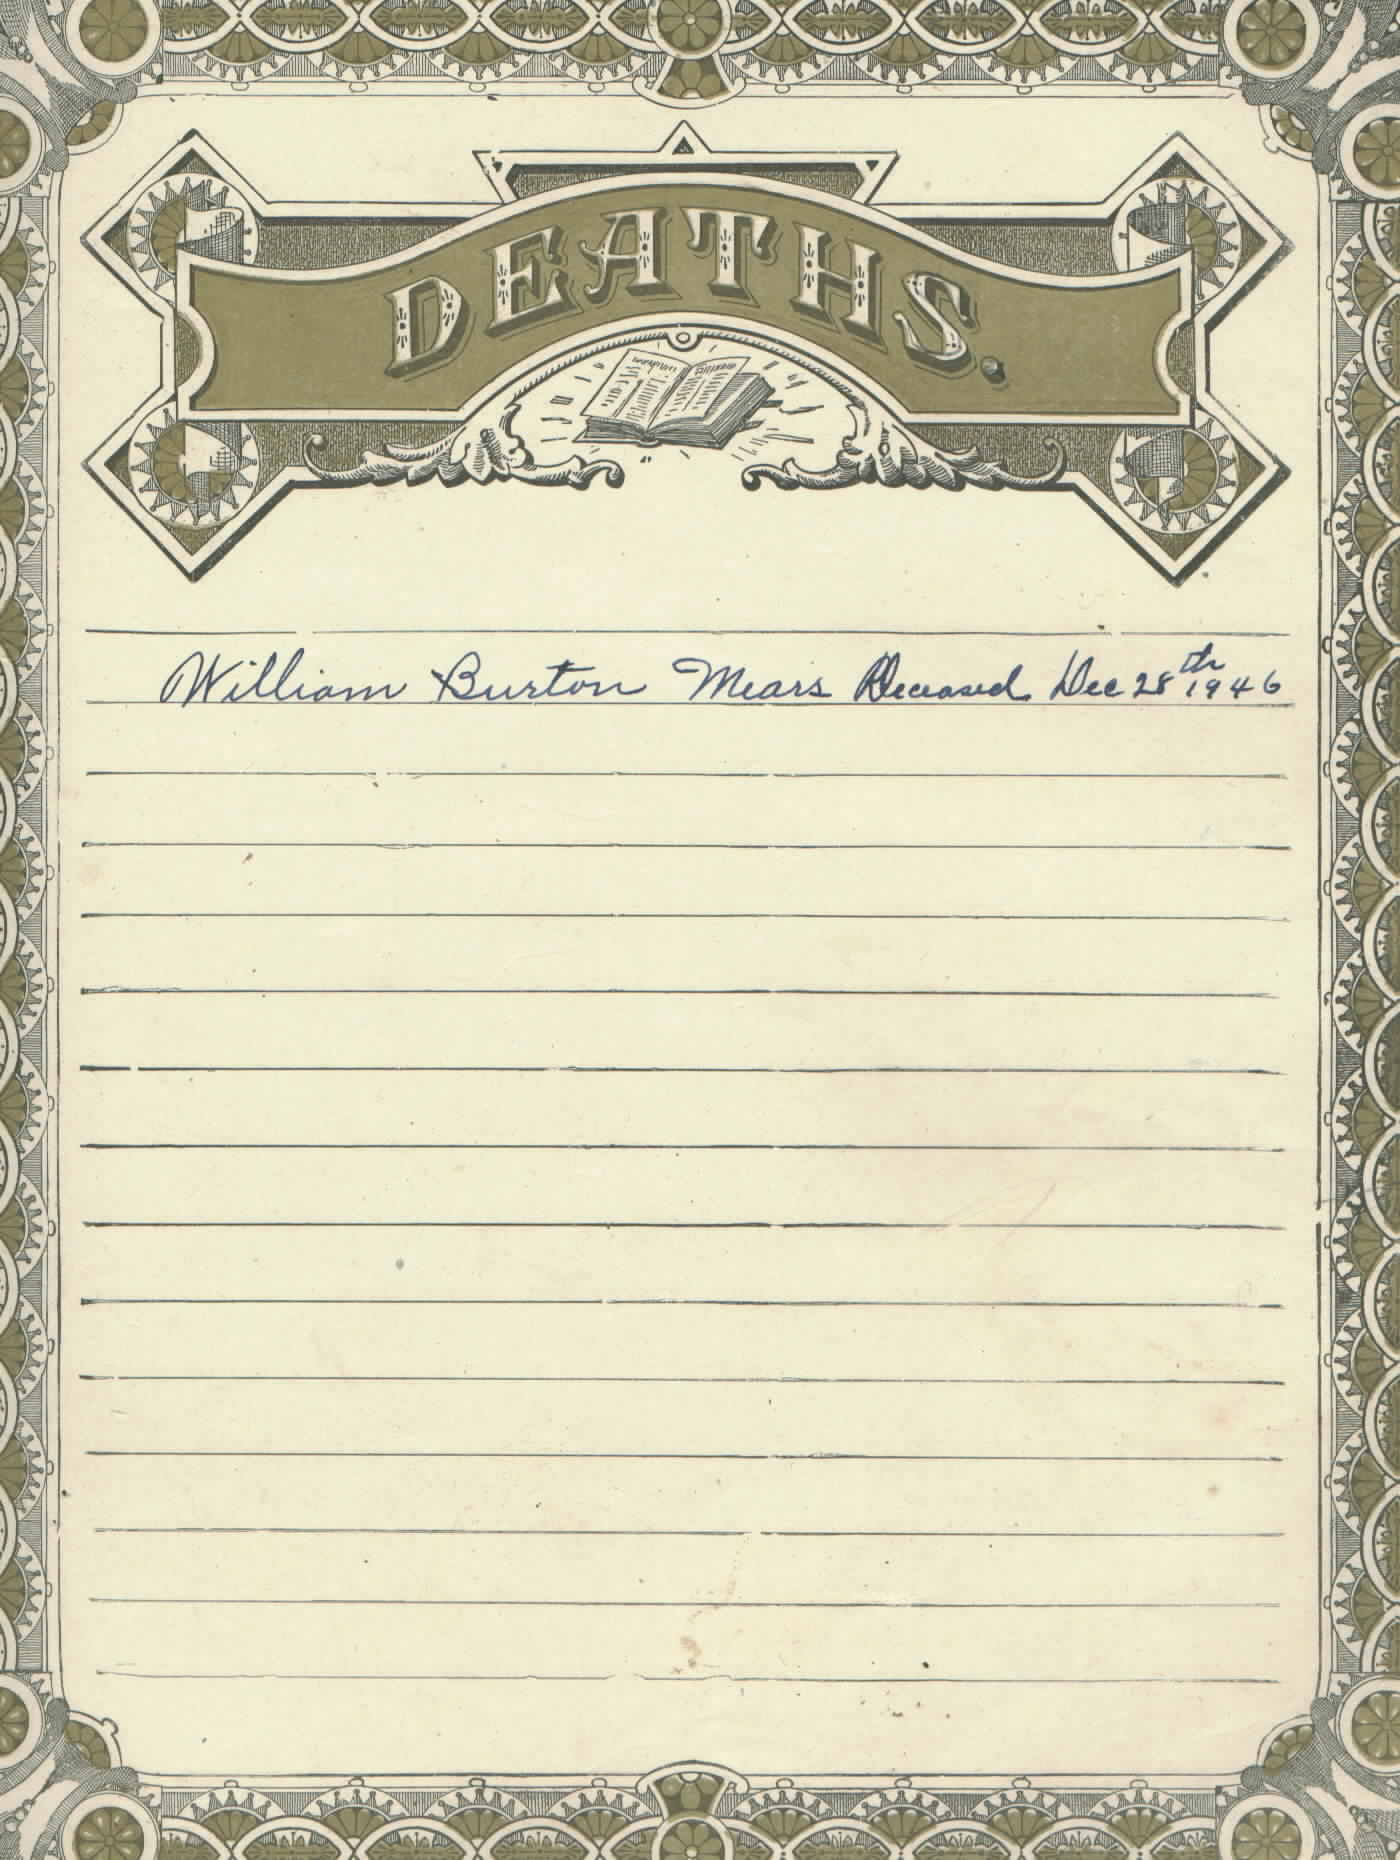 DEATHS.
William Burton Mears Deceased Dec 28th 1946